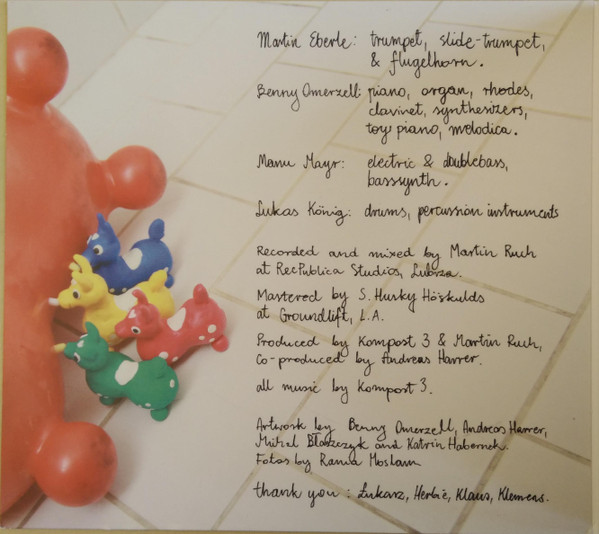 Martin Eberle: trumpet, slide-trumpet,
& flugelhorn.
Benny Omerzell: piano, organ, rhodes,
clavinet, synthesizers,
toy piano, molodica.
Manu Mayr: electric & doublebass,
basssynth.
Lukas König: drums, percussion instruments
Recorded and mixed by Martin Ruch
at RecPublica Studios, Lubrza.
Mastered by S. Husky Höskulds
at Groundlift, L.A.
Produced by Kompost 3 & Martin Ruch,
Co-produced by Andreas Harrer.
all music by Kompost 3.
Artwork by Benny Omerzell, Andreas Harrer,
Michal Błaszczyk and Katrin Haberneh.
Fotos by Rania Moslam
thank you: Łukarz, Herbie, Klaus, Klemens.